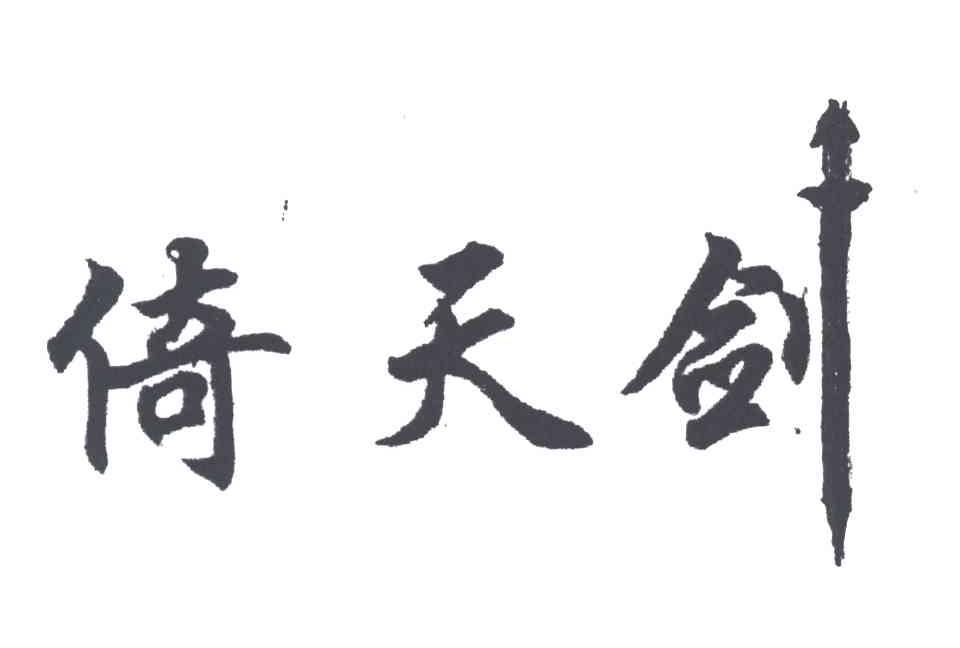 倚天剑